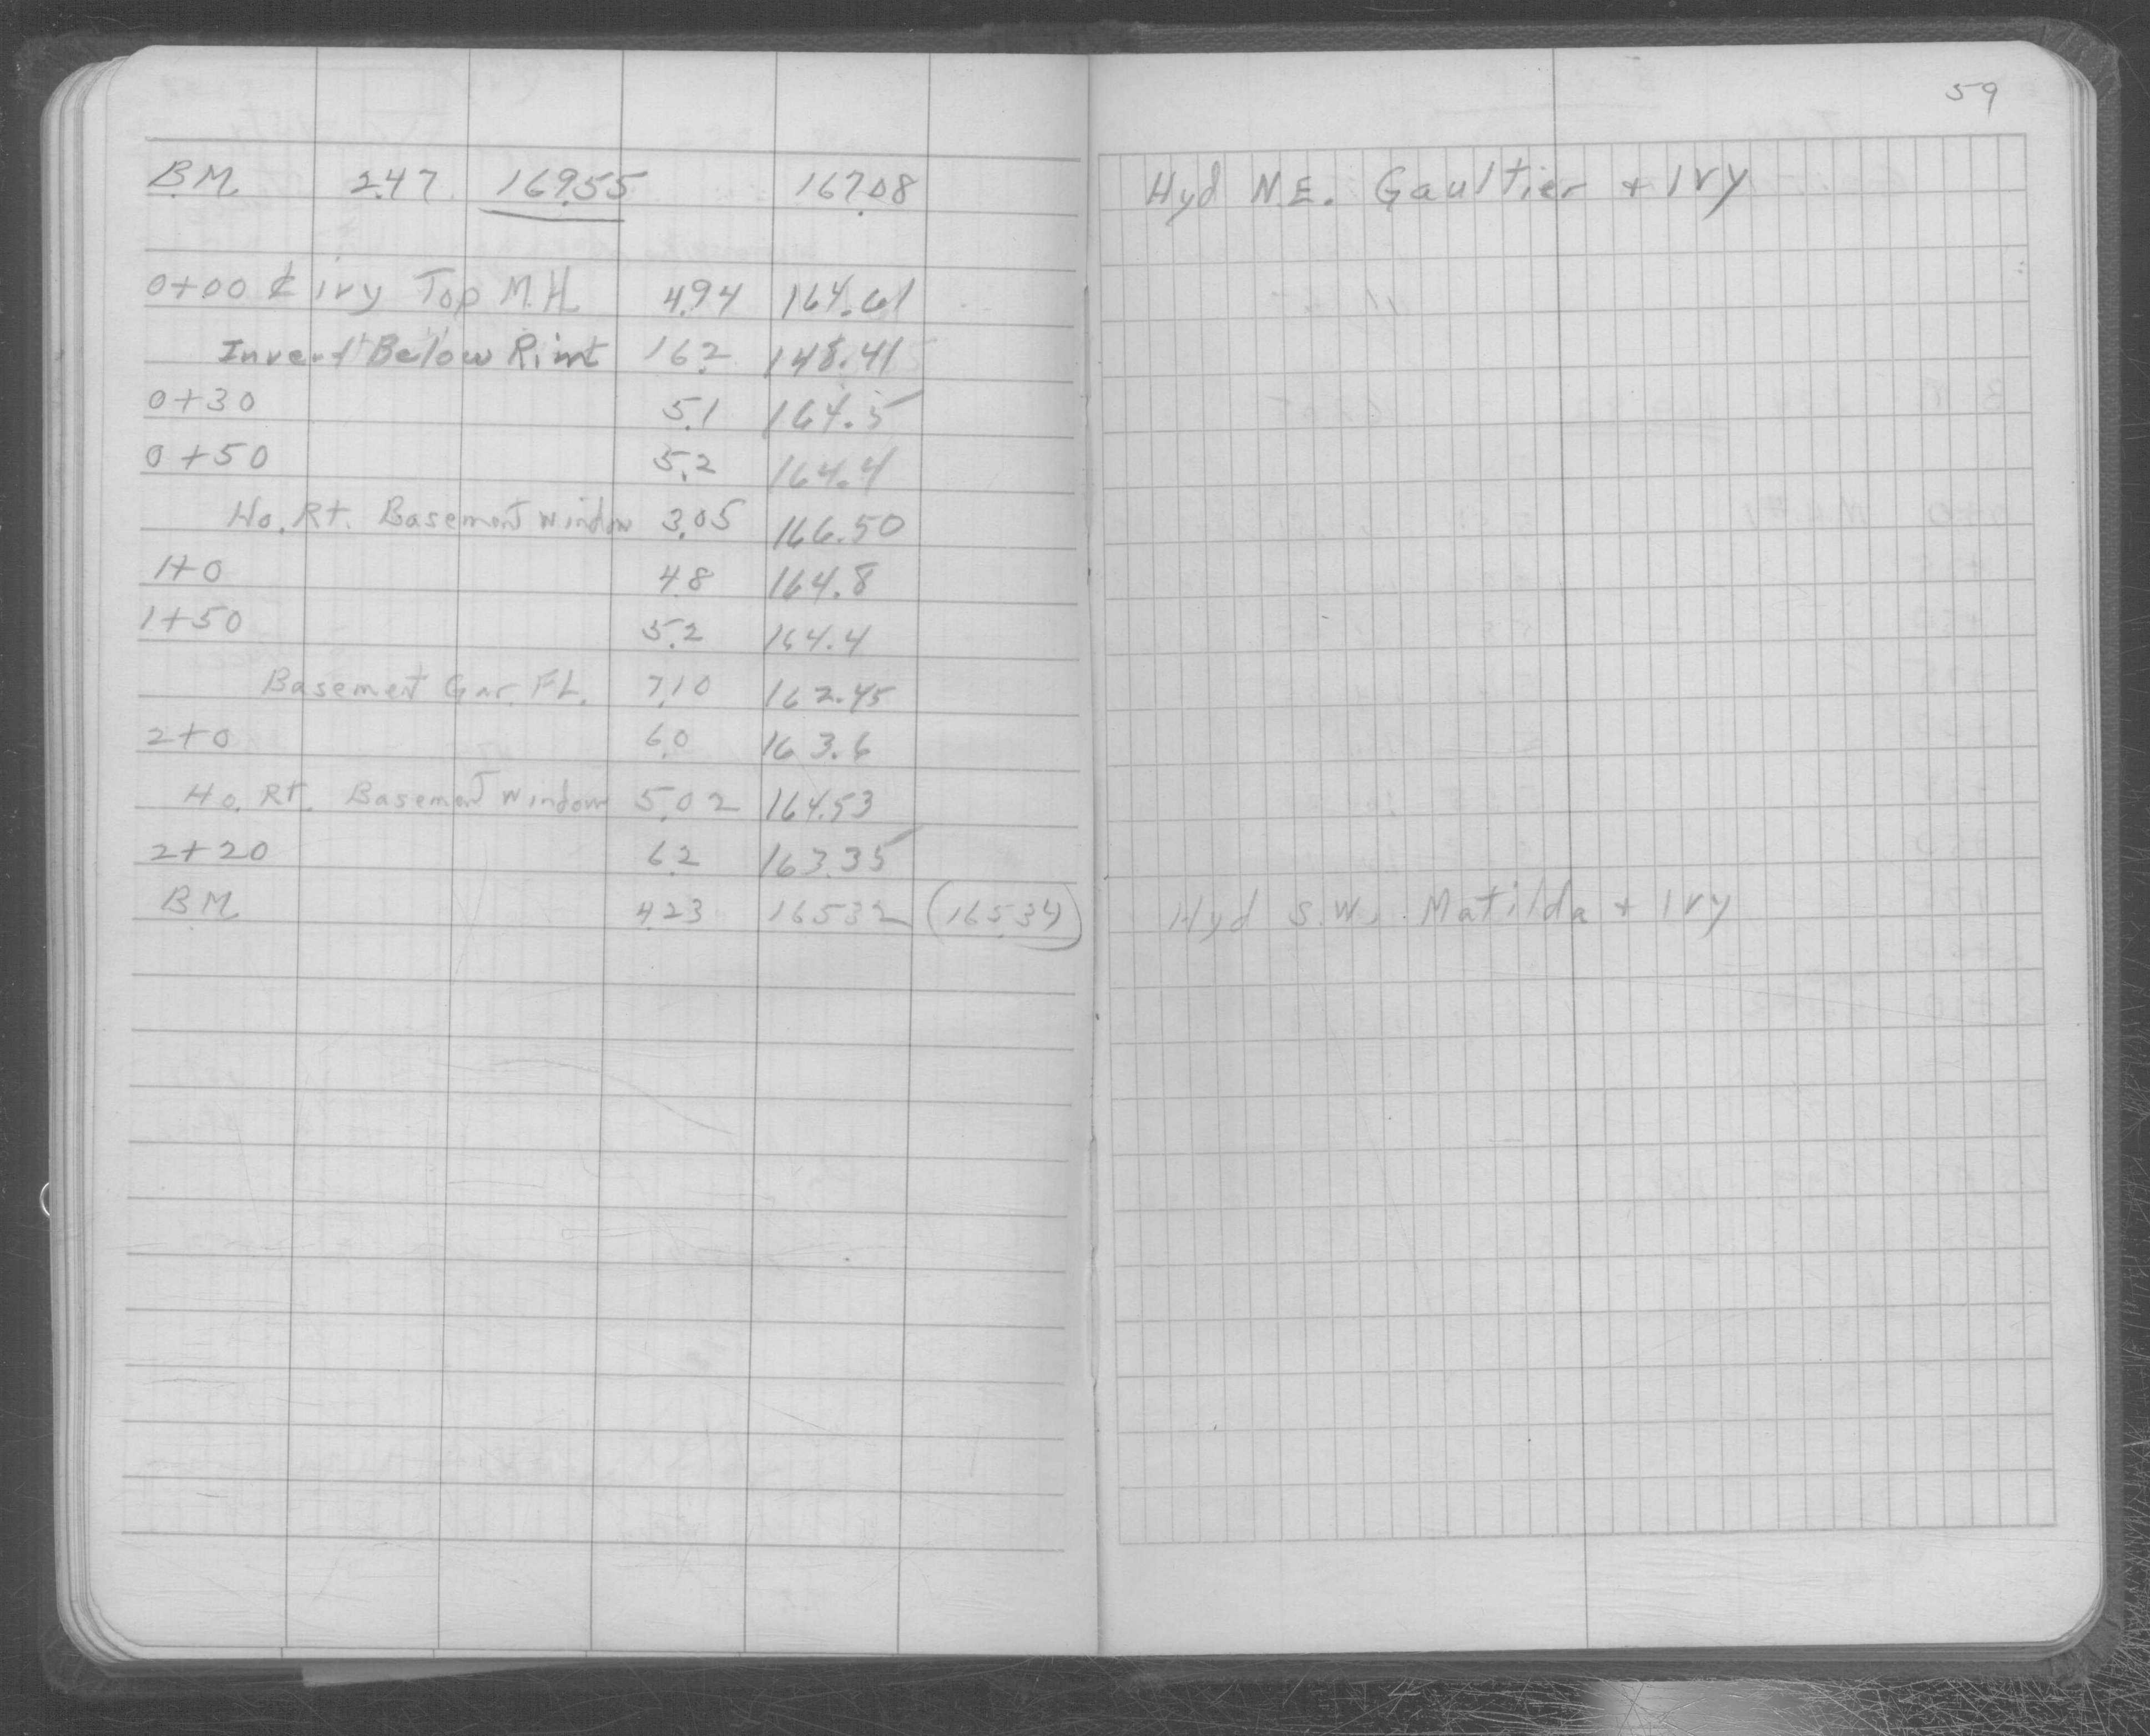 59
B.M. 2.47 169.55 167.08 Hyd N.E. Gaultier + Ivy
0+00 ℄ Ivy Top M.H. 4.94 164.61
Invert Below Rim 16.2 148.41
0+30 5.1 164.5
0+50 5.2 164.4
Ho. Rt. Basement Window 3.05 166.50
1+0 4.8 164.8
1+50 5.2 164.4
Basement Gar. FL. 7.10 162.45
2+0 6.0 163.6
Ho. Rt. Basement Window 5.02 164.53
2+20 6.2 163.35
B.M. 4.23 165.32 (165.34) Hyd S.W. Matilda + Ivy